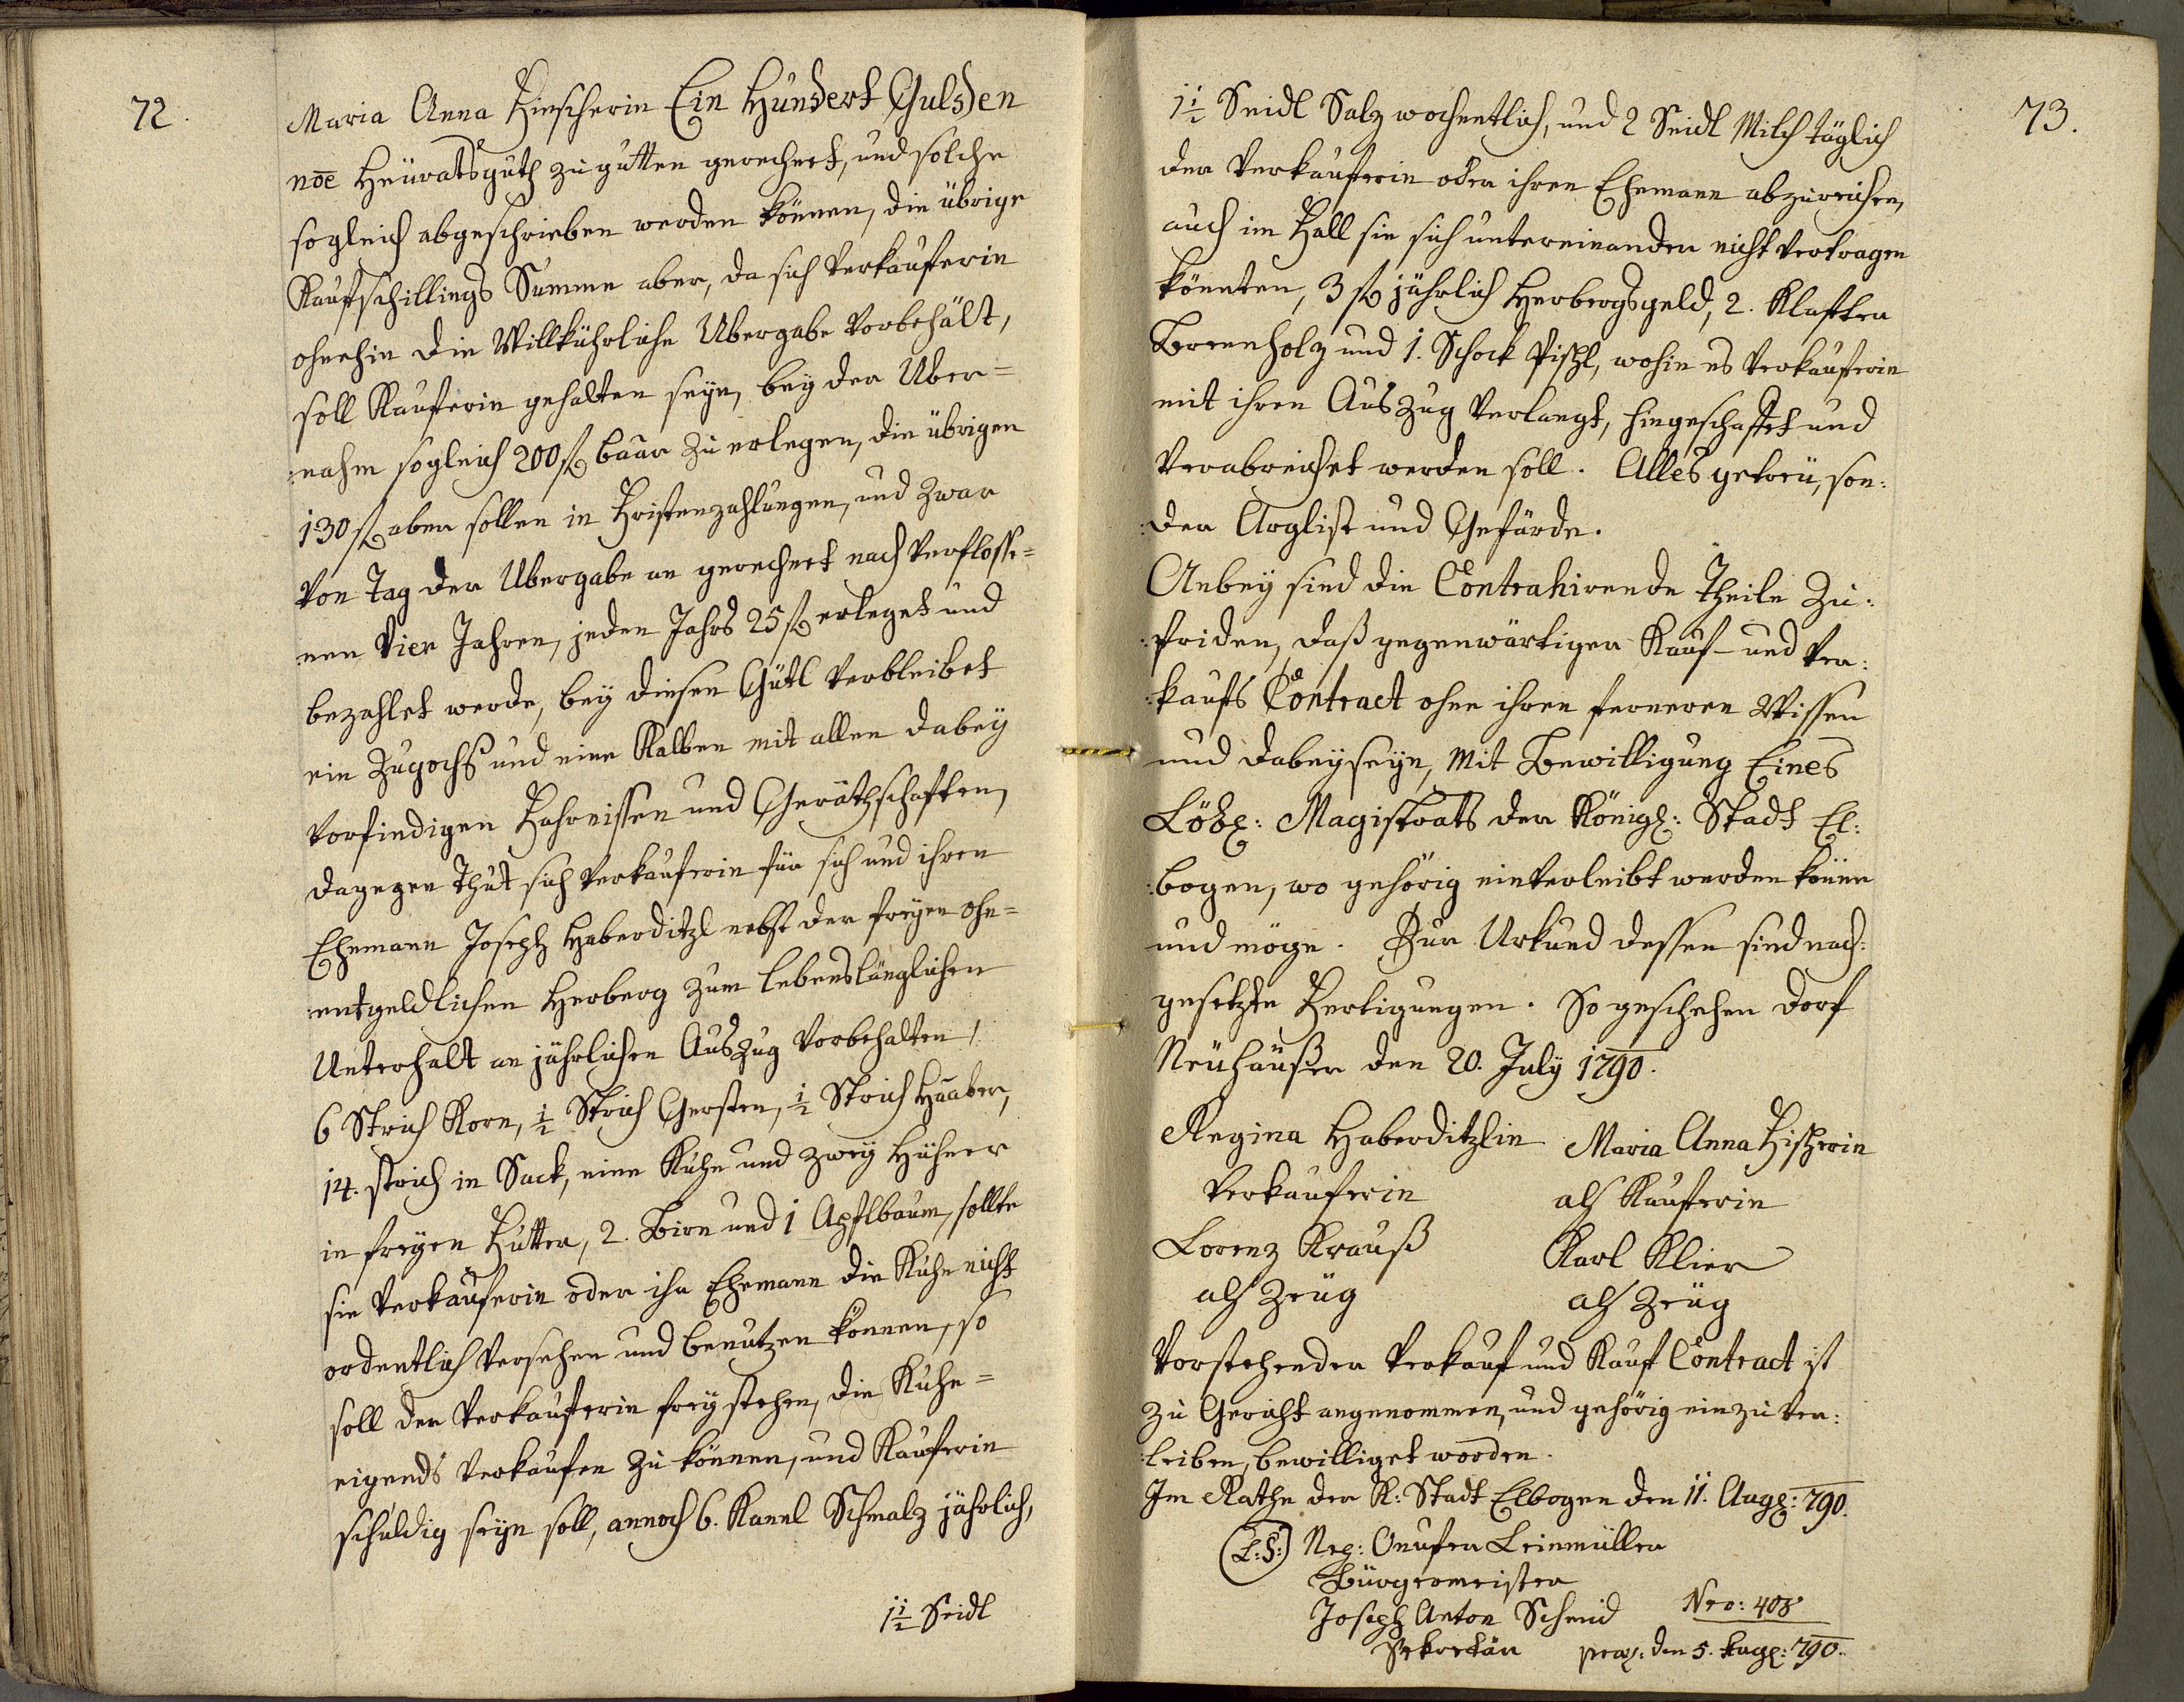 72.
Maria Anna Fischerin Ein Hundert Gulden
nõe Heuratsguth zu gutten gerechnet, und solche
sogleich abgeschrieben werden können, die übrige
Kaufschillings Summe aber, da sich Verkauferin
ohnehin die Willkührliche Ubergabe vorbehält,
soll Kauferin gehalten seyn, bey der Uber=
:nahm sogleich 200 fl baar zu erlegen, die übrigen
130 fl aber sollen in Fristenzahlungen, und zwar
von Tag der Ubergabe an gerechnet nach verflosse=
nen vier Jahren, jeden Jahrs 25 fl erleget und
bezahlet werde, bey diesen Gütl verbleibet
ein Zugochs und eine Kalben mit allen dabey
vorfindigen Fahrnissen und Geräthschaften,
dagegen thut sich Verkauferin für sich und ihren
Ehemann Joseph Haberditzl nebst der freyen ohn=
:entgeldlichen Herberg zum lebenslänglichen
Unterhalt an jährlichen Auszug vorbehalten,
6 Strich Korn, 1/2 Strich Gersten, 1/2 Strich Haaber,
14. strich in Sack, eine Kuhe und zwey Hühner
in freyen Futter, 2. Birn und 1 Apflbaum, sollte
sie Verkäuferin oder ihr Ehemann die Kuhe nicht
ordentlich versehen und benutzen können, so
soll der Verkauferin frey stehen, die Kuhe=
eigends verkaufen zu können, und Kauferin
schuldig seyn soll, annoch 6. Kannl Schmalz jährlich,
1 1/2 Seidl
73.
1 1/2 Seidl Salz wochentlich, und 2 Seidl Milch täglich
der Verkauferin oder ihren Ehemann abzureichen,
auch im Fall sie sich untereinander nicht vertragen
könnten, 3 fl jährlich Herbergsgeld, 2. Klafter
Brennholz und 1. Schock Pischl, wohin es Verkauferin
mit ihren Auszug verlangt, hingeschaffet und
verabreichet werden soll. Alles getreu, son:
:der Arglist und Gefärde.
Anbey sind die Contrahirende Theile zu:
:friden, daß gegenwärtiger Kauf- und Ver:
:kaufs Contract ohne ihren ferneren Wissen
und dabeyseyn, mit Bewilligung Eines
Löbl: Magistrats der Königl: Stadt El:
:bogen, wo gehörig einverleibt werden könne
und möge. Zur Urkund dessen sind nach:
gesetzte Fertigungen. So geschehen Dorf
Neuhäußer den 20. July 1790.
Regina Haberditzlin Maria Anna Fischerin
Verkauferin als Kauferin
Lorenz Krauß Karl Klier
als Zeüg als Zeüg
Vorstehender Verkauf und Kauf Contract ist
zu Gericht angenommen, und gehörig einzuver:
:leiben, bewilliget worden.
Im Rathe der K: Stadt Elbogen den 11. Augl: 790.
(L:S:) Nep: Onufer Leinmüller
Bürgermeister
Joseph Anton Schmid Nro: 408
Sekretär praes: den 5. Augl: 790.